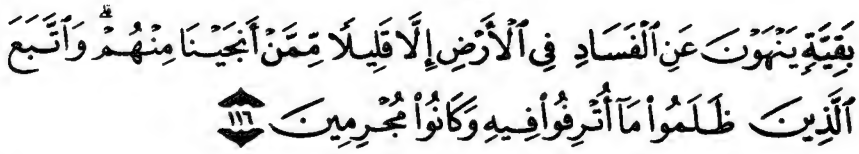 بَقِيَّةٍ يَنْهَوْنَ عَنِ ٱلْفَسَادِ فِى ٱلْأَرْضِ إِلَّا قَلِيلًا مِّمَّنْ أَنجَيْنَا مِنْهُمْ ۗ وَٱتَّبَعَ
ٱلَّذِينَ ظَلَمُوا۟ مَآ أُتْرِفُوا۟ فِيهِ وَكَانُوا۟ مُجْرِمِينَ ١١٦